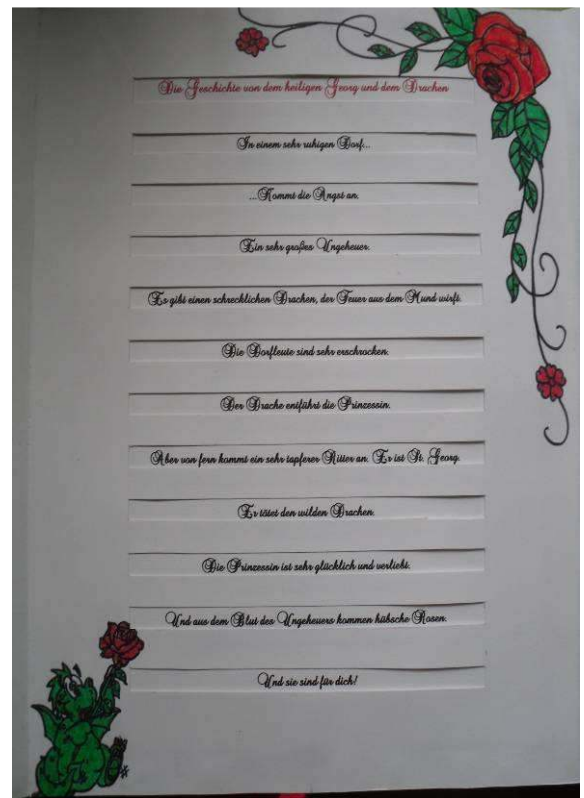 Die Geschichte von dem heiligen Georg und dem Drachen
In einem sehr ruhigen Dorf...
...Kommt die Angst an.
Ein sehr großes Ungeheuer.
Es gibt einen schrecklichen Drachen, der Feuer aus dem Mund wirft.
Die Dorfleute sind sehr erschrocken.
Der Drache entführt die Prinzessin.
Aber von fern kommt ein sehr tapferer Ritter an. Er ist St. Georg.
Er tötet den wilden Drachen.
Die Prinzessin ist sehr glücklich und verliebt.
Und aus dem Blut des Ungeheuers kommen hübsche Rosen.
Und sie sind für dich!